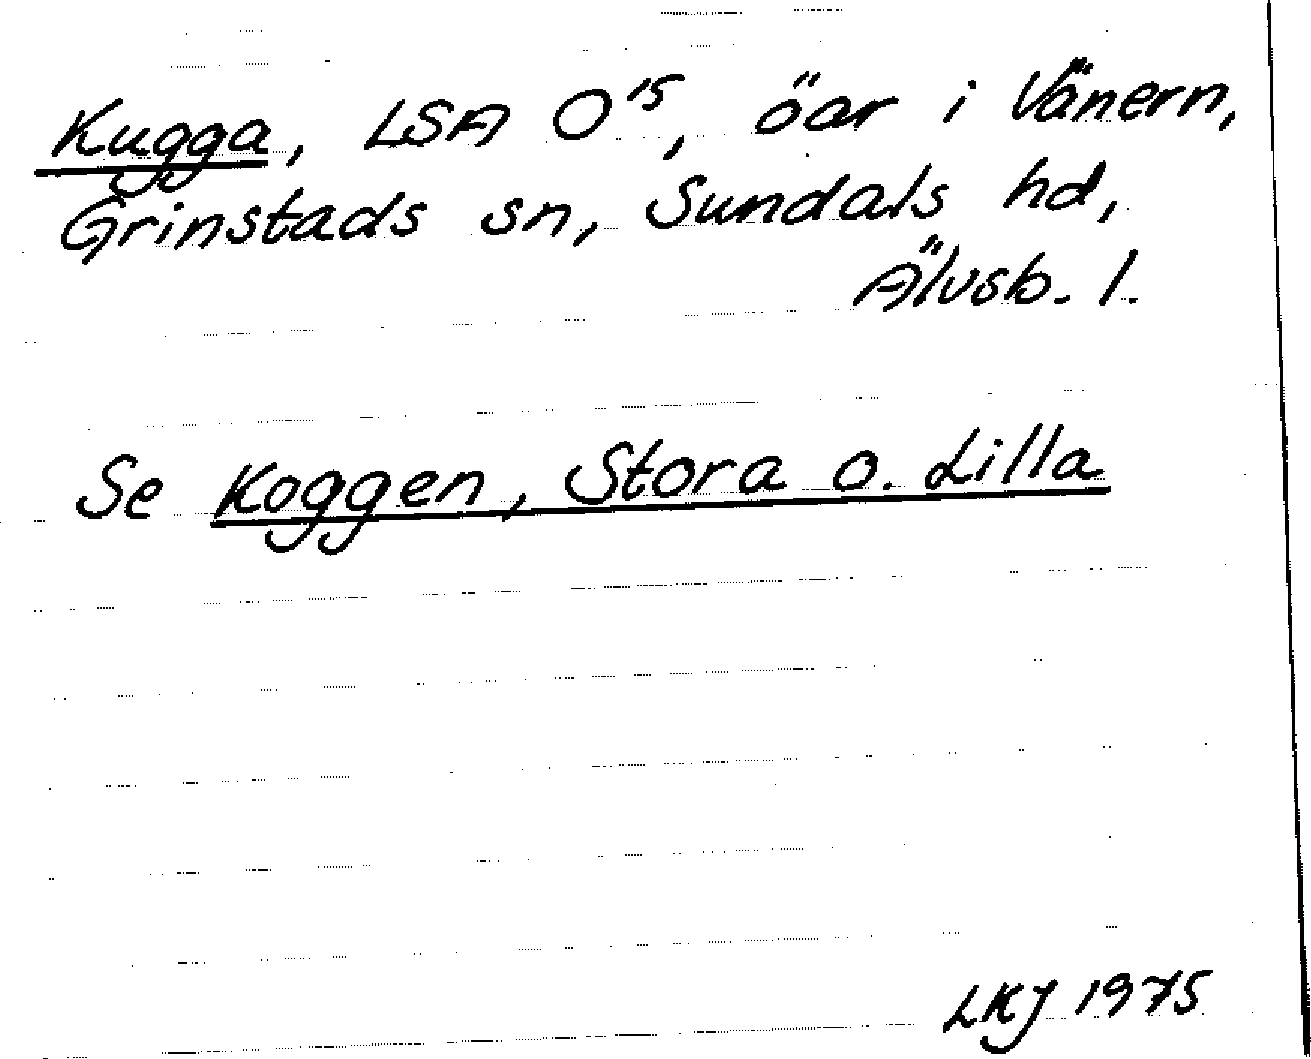 Kugga, LSA O15, öar i Vänern,
Grinstads sn, Sundals hd,
Älvsb. l.
Se Koggen, Stora o. Lilla
LKJ 1975